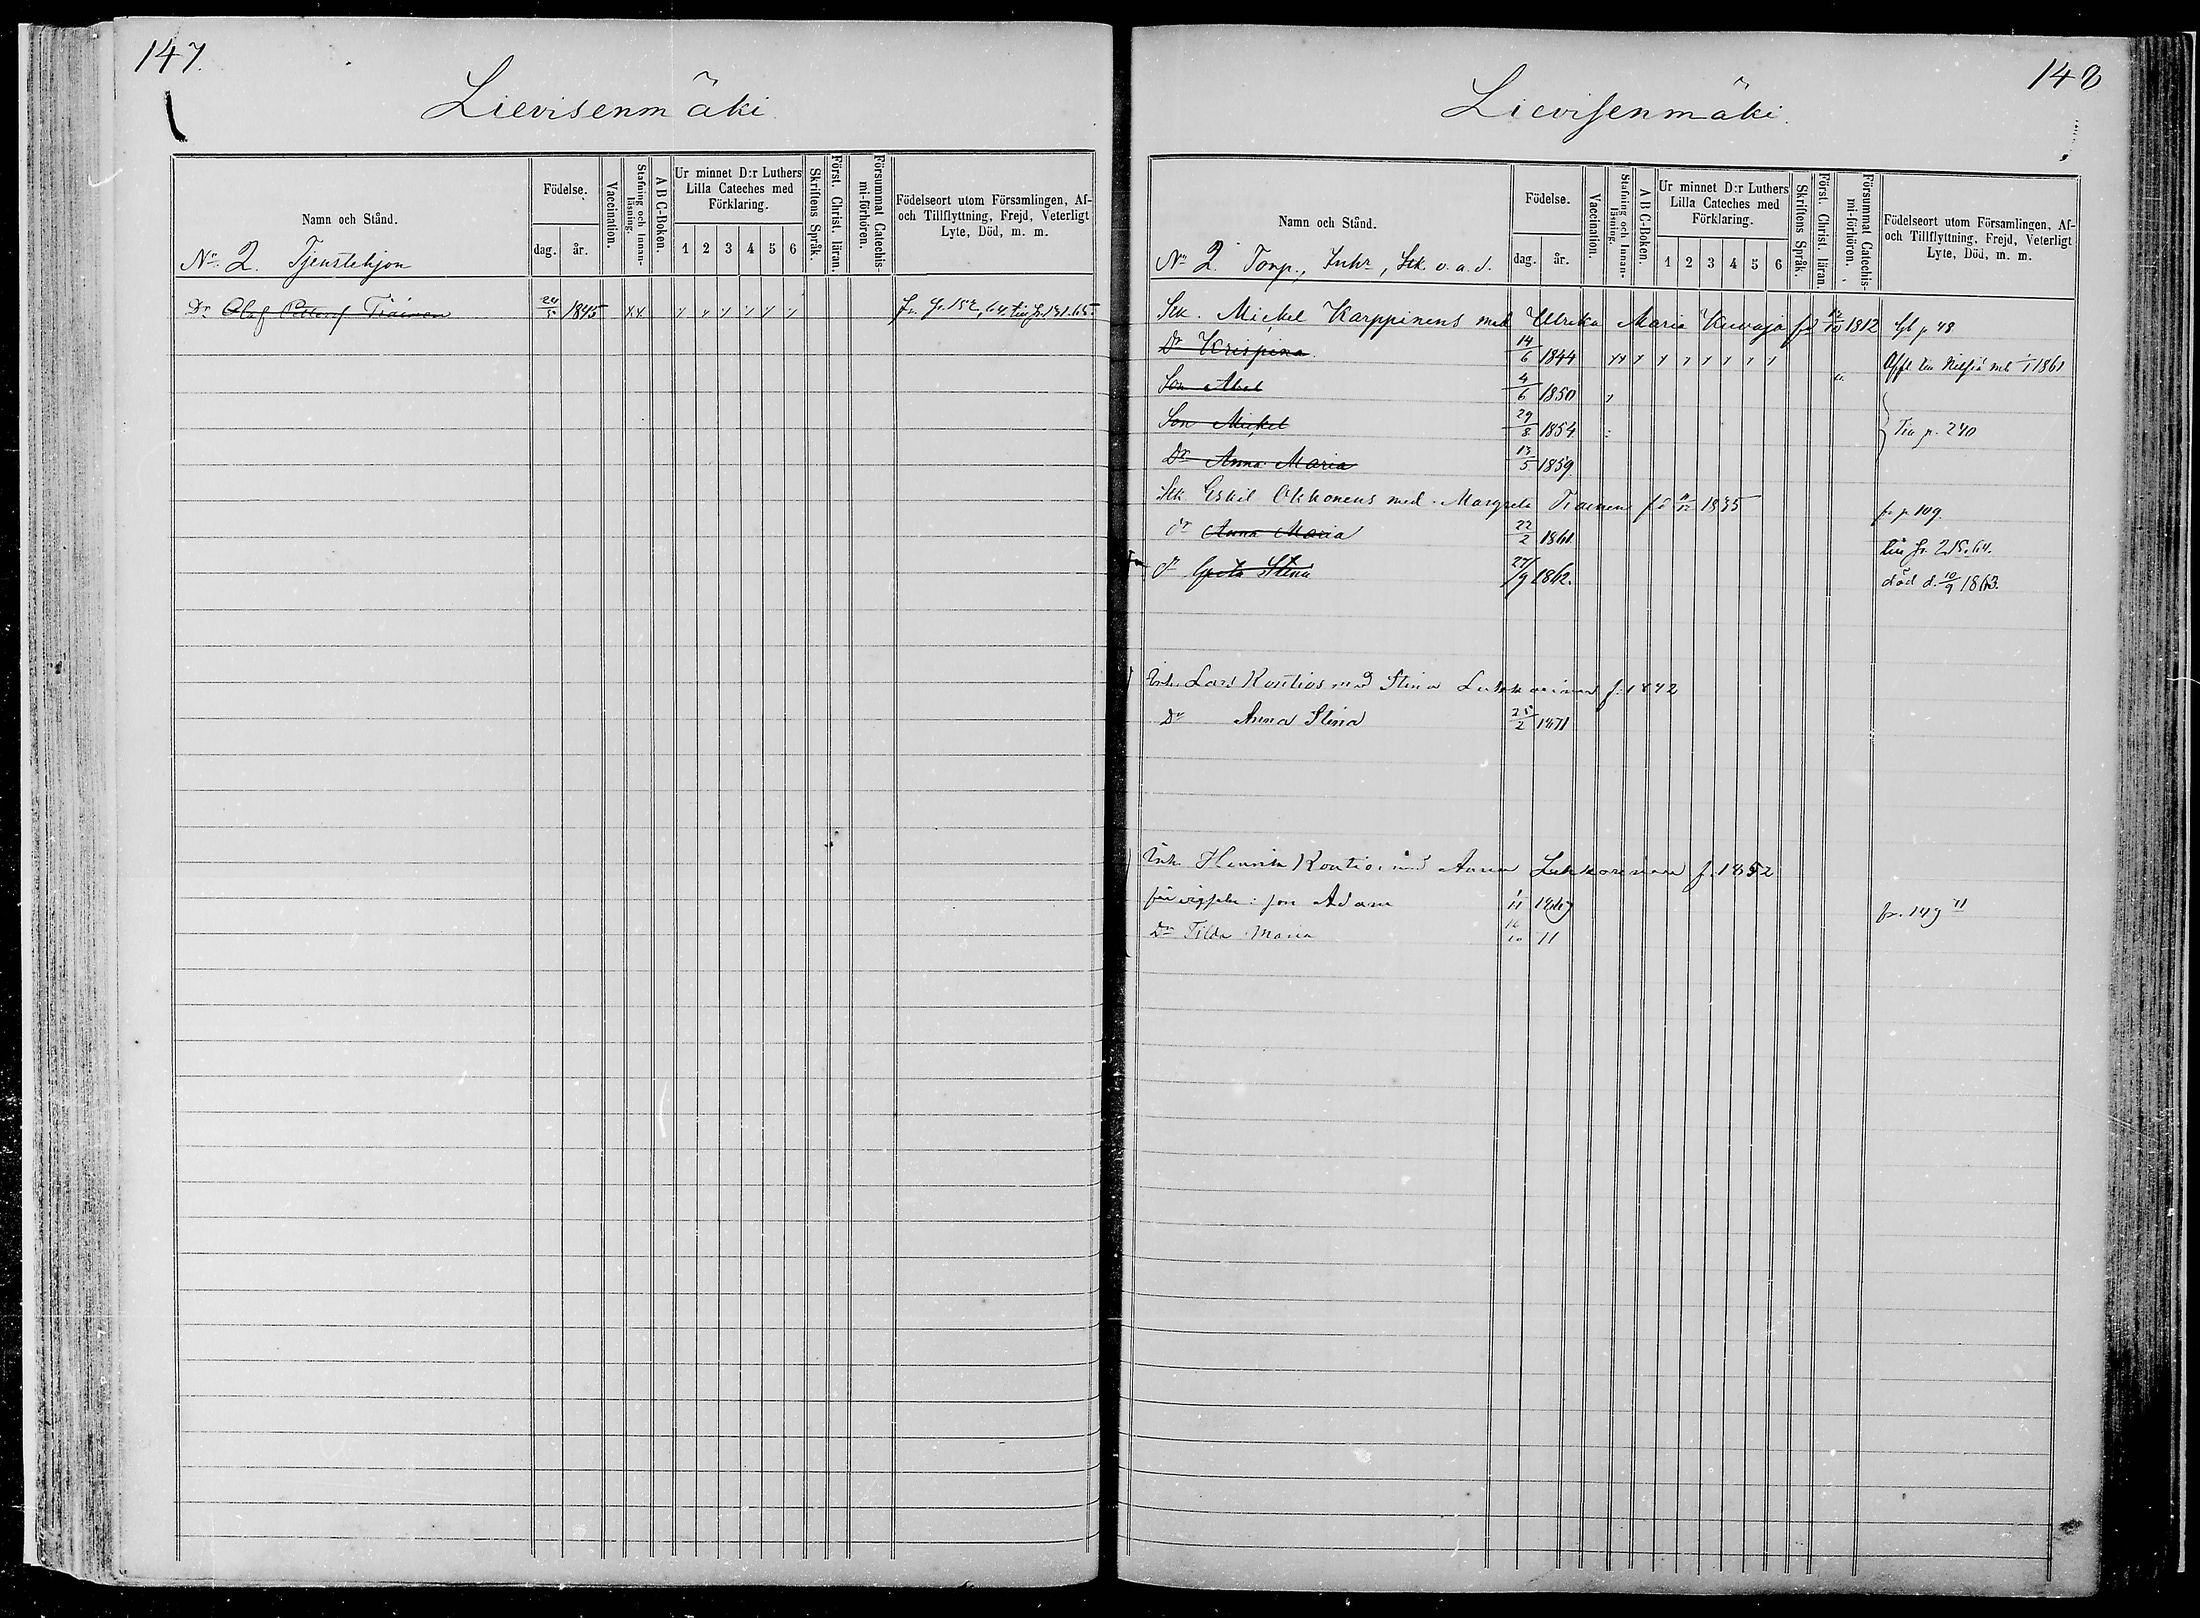 147.
Lievisenmäki
Namn och Stånd.
Födelse.
dag. år.
Vaccination.
Stafning och Innanläsning.
A B C-Boken.
Ur minnet D:r Luthers Lilla Cateches med Förklaring.
1 2 3 4 5 6
Skriftens Språk.
Först. Christ. läran.
Försummat Catechismi-förhören.
Födelseort utom Församlingen, Af- och Tillflyttning, Frejd, Veterligt Lyte, Död, m. m.
No. 2. Tjenstehjon
Dr Olaf 24/5 1845 fr. p. 152, 64. p. 191. 65.
148
Lievisenmäki.
Namn och Stånd.
Födelse.
dag. år.
Vaccination.
Stafning och Innanläsning.
A B C-Boken.
Ur minnet D:r Luthers Lilla Cateches med Förklaring.
1 2 3 4 5 6
Skriftens Språk.
Först. Christ. läran.
Försummat Catechismi-förhören.
Födelseort utom Församlingen, Af- och Tillflyttning, Frejd, Veterligt Lyte, Död, m. m.
No 2. Torp., Inhr, Stk o. a. d.
Stk. Mickel Karppinens med Ulrika Maria Kuwaja fd 1812 p 48
Dr Krispina 14/6 1844 1861
Son Abel 4/6 1850
Son Mickel 29/8 1854 p. 240
Dr Anna Maria 13/5 1859
Stk Eskil Okkonens med Margreta fd 1835 fr p 109.
dr Anna Maria 22/2 1861 p. 215. 64.
dr Greta Stina 27/9 1862. död d. 10/9 1863.
Inh. Lars Kontios med Stina Lukkarinen f. 1842
Dr Anna Stina 25/2 1871
Inh. Henrik Kontios med Anna Lukkarinen f. 1852
son Adam fr. 149
Dr Tilda Maria 16/10 71